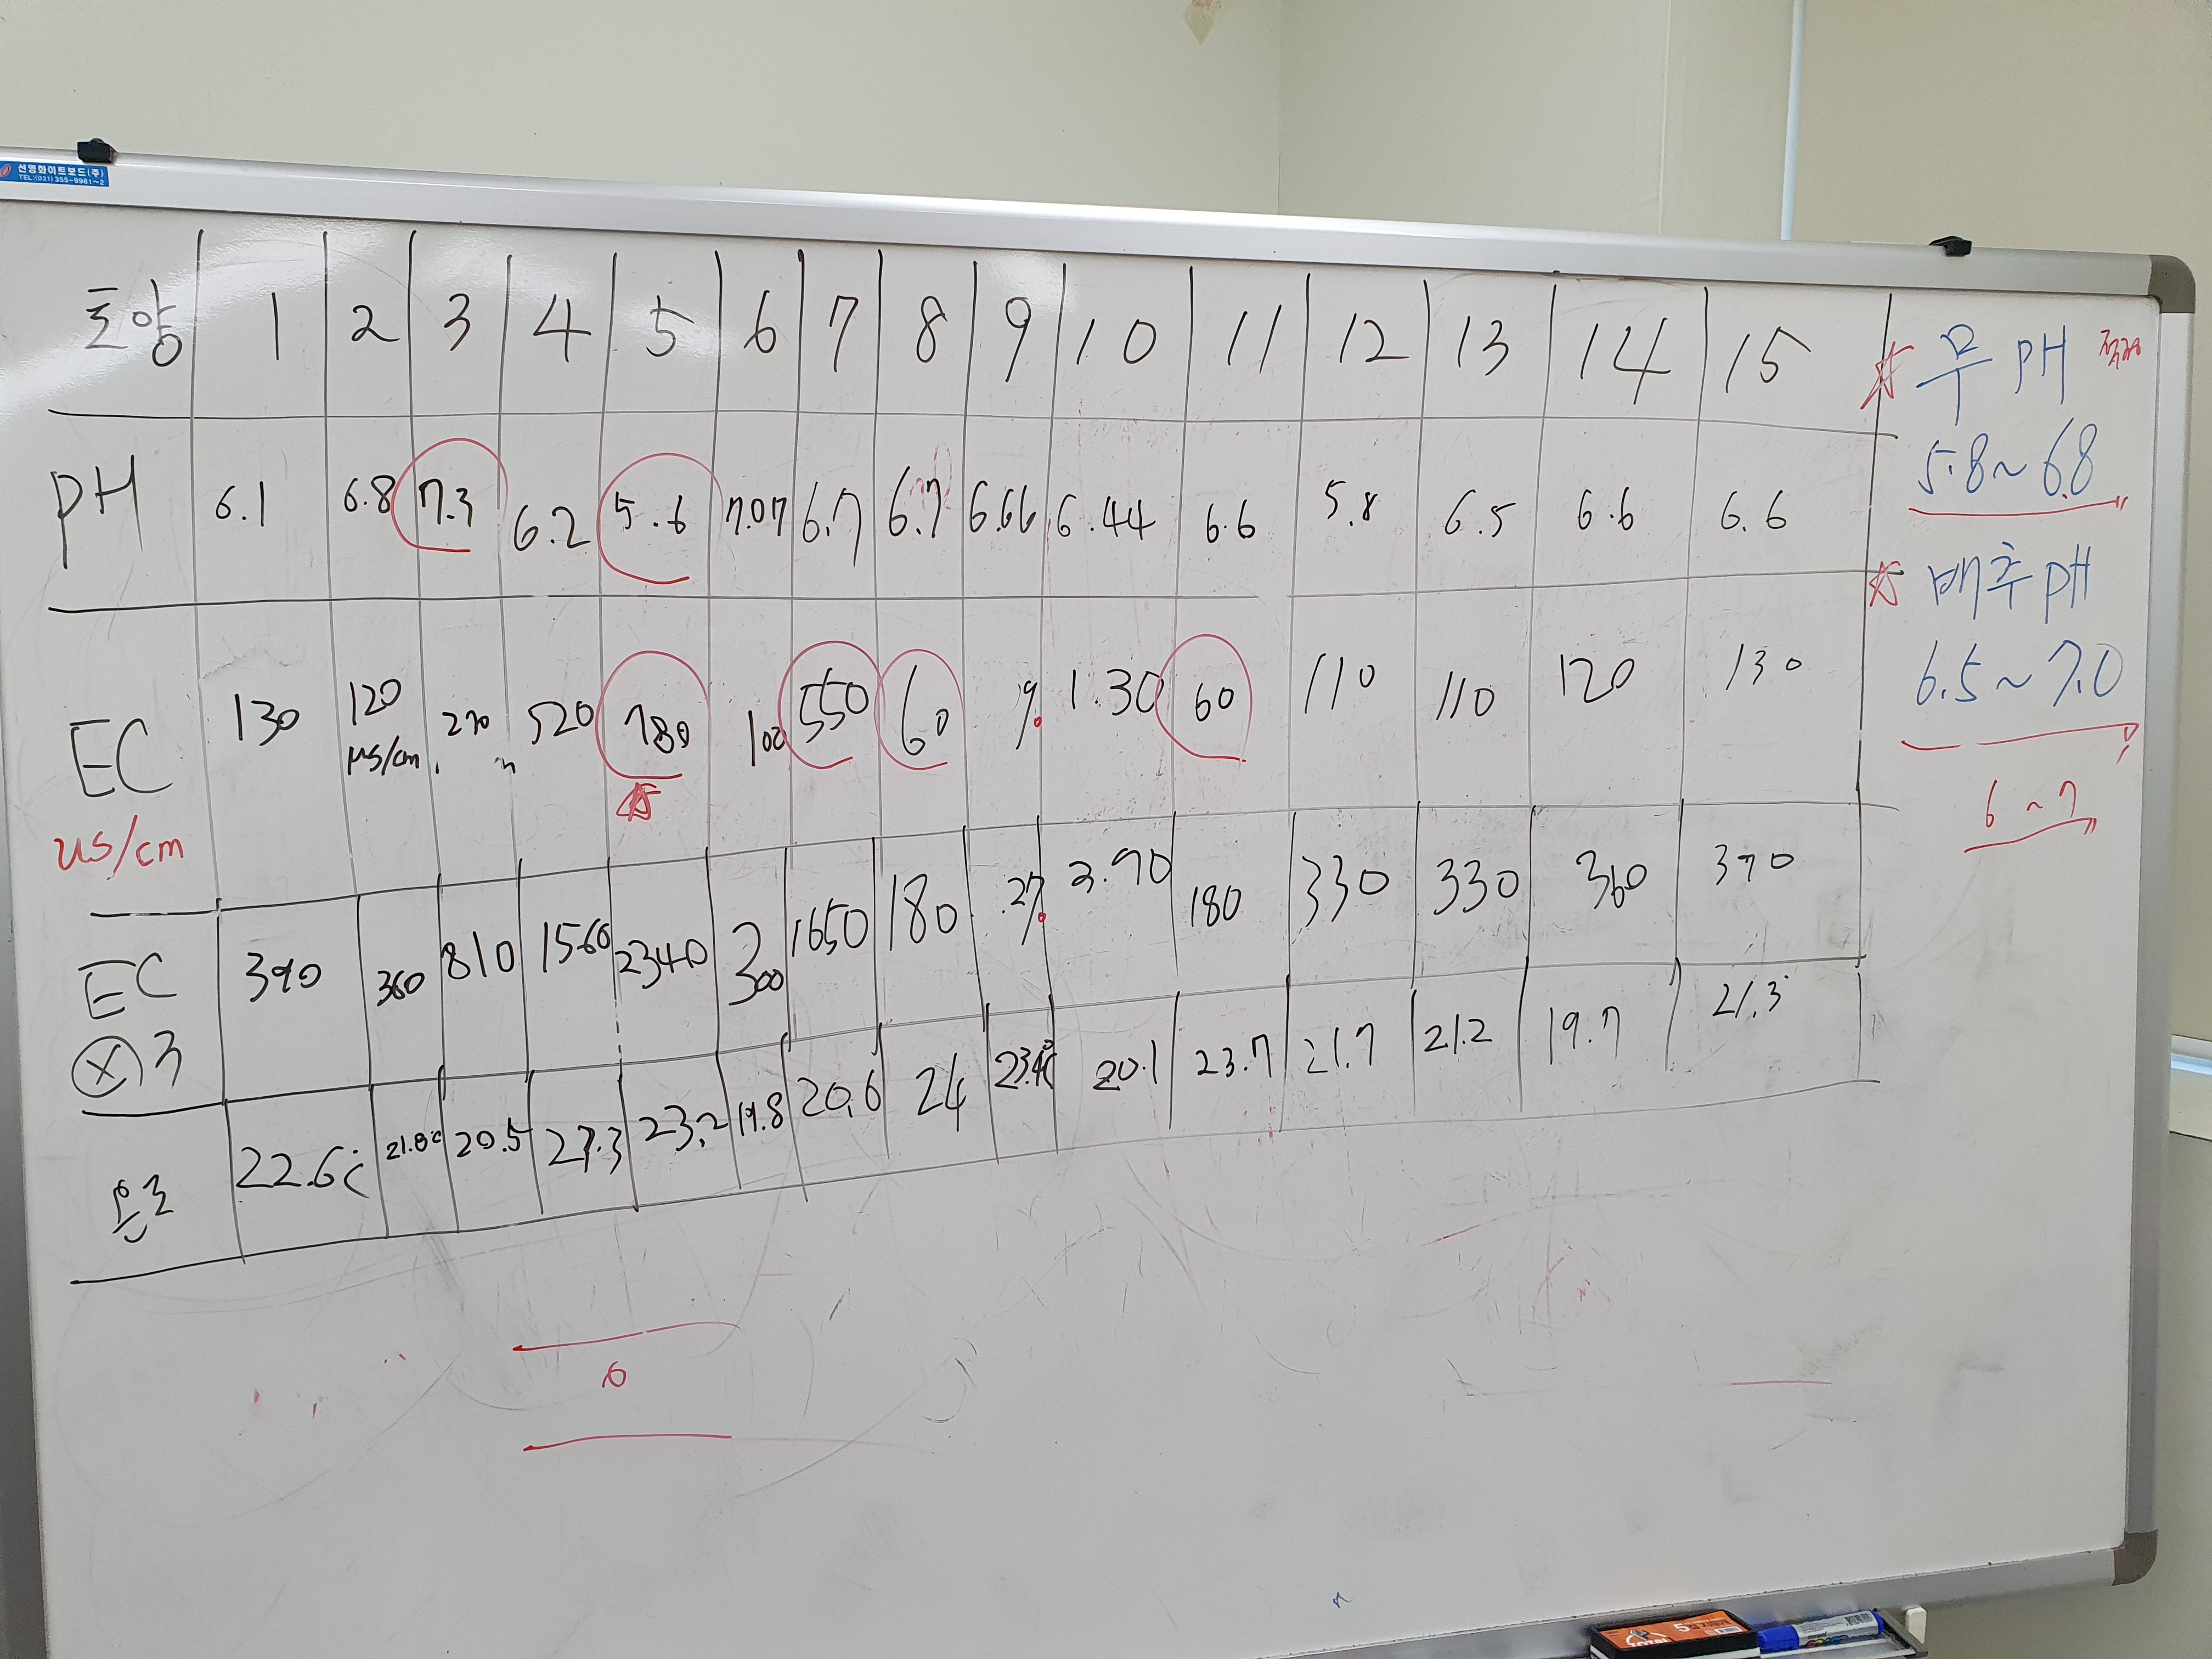 선명화이트보드(주)
TEL:(031)355-9961~2
토양 1 2 3 4 5 6 7 8 9 10 11 12 13 14 15
PH 6.1 6.8 7.3 6.2 5.6 7.07 6.7 6.7 6.66 6.44 6.6 5.8 6.5 6.6 6.6
EC 130 120 270 520 780 100 550 60 1.30 60 110 110 120 130
us/cm μs/cm
EC 390 360 810 1560 2340 300 1650 180 .27 3.90 180 330 330 360 390
ⓧ3
온도 22.6℃ 21.8℃ 20.5 27.3 23.2 19.8 20.6 24 23.4℃ 20.1 23.7 21.7 21.2 19.7 21.3
☆ 무 PH
5.8~6.8
☆ 배추 PH
6.5~7.0
6~7
6